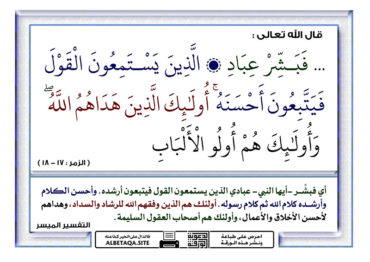 قال الله تعالى :
... فَبَشِّرْ عِبَادِ ۞ الَّذِينَ يَسْتَمِعُونَ الْقَوْلَ
فَيَتَّبِعُونَ أَحْسَنَهُ ۚ أُولَـٰئِكَ الَّذِينَ هَدَاهُمُ اللَّهُ ۖ
وَأُولَـٰئِكَ هُمْ أُولُو الْأَلْبَابِ
( الزمر : ١٧ – ١٨ )
أي فبشّر –أيها النبي– عبادي الذين يستمعون القول فيتبعون أرشده . وأحسن الكلام
وأرشده كلام الله ثم كلام رسوله . أولئك هم الذين وفقهم الله للرشاد والسداد ، وهداهم
لأحسن الأخلاق والأعمال ، وأولئك هم أصحاب العقول السليمة .
التفسير الميسر
احرص على طباعة
ونشر هذه الورقة
فالدال على الخير كفاعله
ALBETAQA.SITE